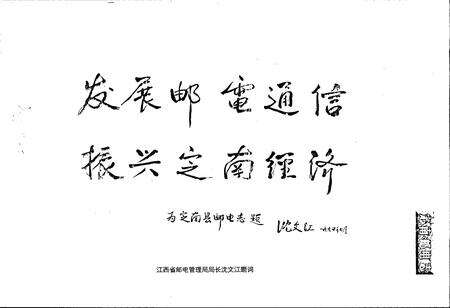 发展邮電通信
振兴定南經济
为定南县邮电志题
沈文江
江西省邮电管理局局长沈文江题词